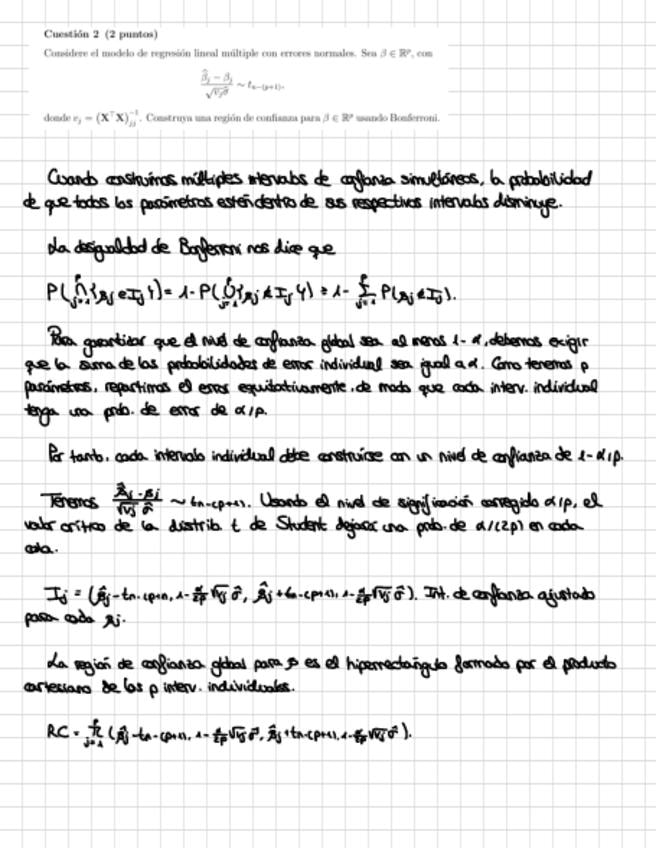 Cuestión 2 (2 puntos)
Considere el modelo de regresión lineal múltiple con errores normales. Sea β ∈ ℝᵖ, con
(β̂ⱼ − βⱼ) / (√vⱼ σ̂) ∼ tₙ₋₍ₚ₊₁₎,
donde vⱼ = (X⊤X)⁻¹ⱼⱼ. Construya una región de confianza para β ∈ ℝᵖ usando Bonferroni.
Cuando construimos múltiples intervalos de confianza simultáneos, la probabilidad
de que todos los parámetros estén dentro de sus respectivos intervalos disminuye.
La desigualdad de Bonferroni nos dice que
P(⋂ⱼ₌₁ᵖ {βⱼ ∈ Iⱼ}) = 1 - P(⋃ⱼ₌₁ᵖ {βⱼ ∉ Iⱼ}) ≥ 1 - ∑ⱼ₌₁ᵖ P(βⱼ ∉ Iⱼ).
Para garantizar que el nivel de confianza global sea al menos 1-α, debemos exigir
que la suma de las probabilidades de error individual sea igual a α. Como tenemos p
parámetros, repartimos el error equitativamente, de modo que cada interv. individual
tenga una prob. de error de α/p.
Por tanto, cada intervalo individual debe construirse con un nivel de confianza de 1-α/p.
Tenemos (β̂ⱼ - βⱼ) / (√vⱼ σ̂) ∼ tₙ₋₍ₚ₊₁₎. Usando el nivel de significación corregido α/p, el
valor crítico de la distrib. t de Student dejará una prob. de α/(2p) en cada
cola.
Iⱼ = (β̂ⱼ - tₙ₋₍ₚ₊₁₎, 1-α/2p √vⱼ σ̂, β̂ⱼ + tₙ₋₍ₚ₊₁₎, 1-α/2p √vⱼ σ̂). Int. de confianza ajustado
para cada βⱼ.
La región de confianza global para β es el hiperrectángulo formado por el producto
cartesiano de los p interv. individuales.
RC = ∏ⱼ₌₁ᵖ (β̂ⱼ - tₙ₋₍ₚ₊₁₎, 1-α/2p √vⱼ σ̂, β̂ⱼ + tₙ₋₍ₚ₊₁₎, 1-α/2p √vⱼ σ̂).